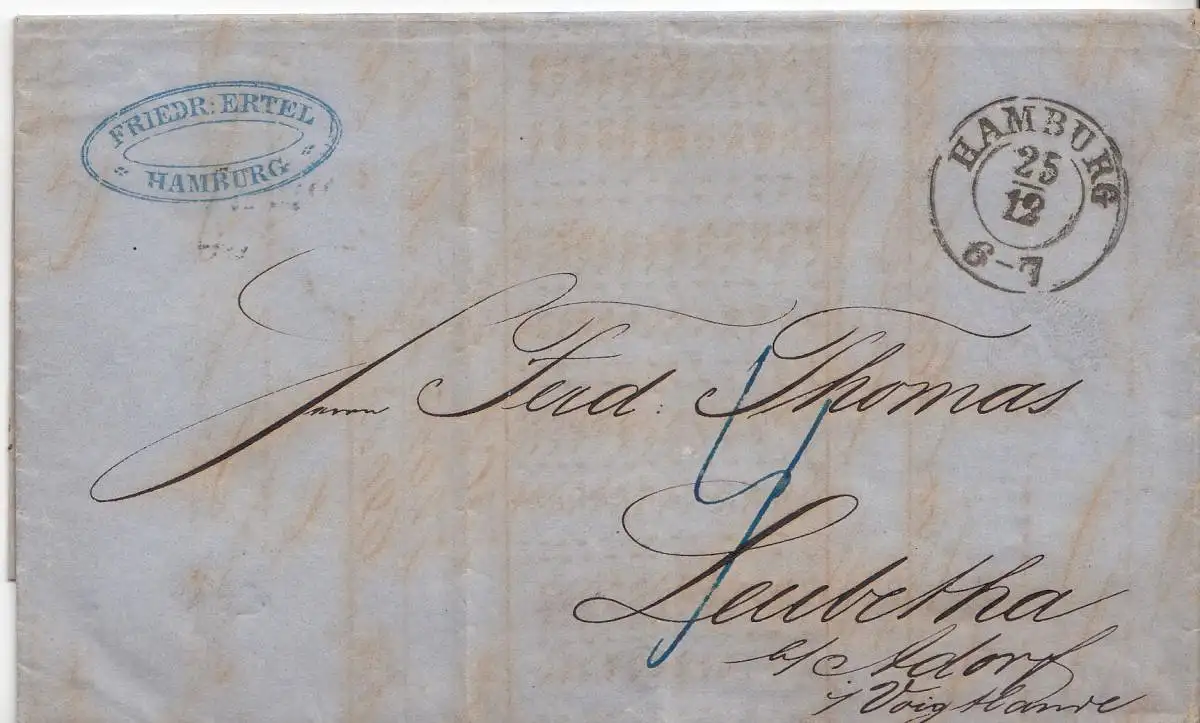 FRIEDR: ERTEL
HAMBURG
HAMBURG
25
12
6-7
Herrn Ferd: Thomas
4
Leubetha
b/ Adorf
i/ Voigtlande